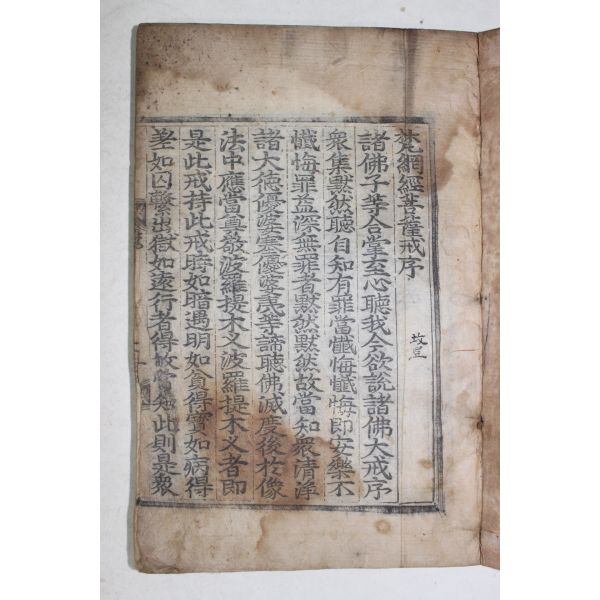 梵網經菩薩戒序
諸佛子等合掌至心聽我今欲說諸佛大戒序
衆集黙然聽自知有罪當懺悔懺悔即安樂不
懺悔罪益深無罪者黙然黙然故當知衆清淨
諸大德優婆塞優婆夷等諦聽佛滅度後於像
法中應當尊敬波羅提木叉波羅提木叉者即
是此戒持此戒時如暗遇明如貧得寶如病得
差如囚繫出獄如遠行者得歸當知此則是衆